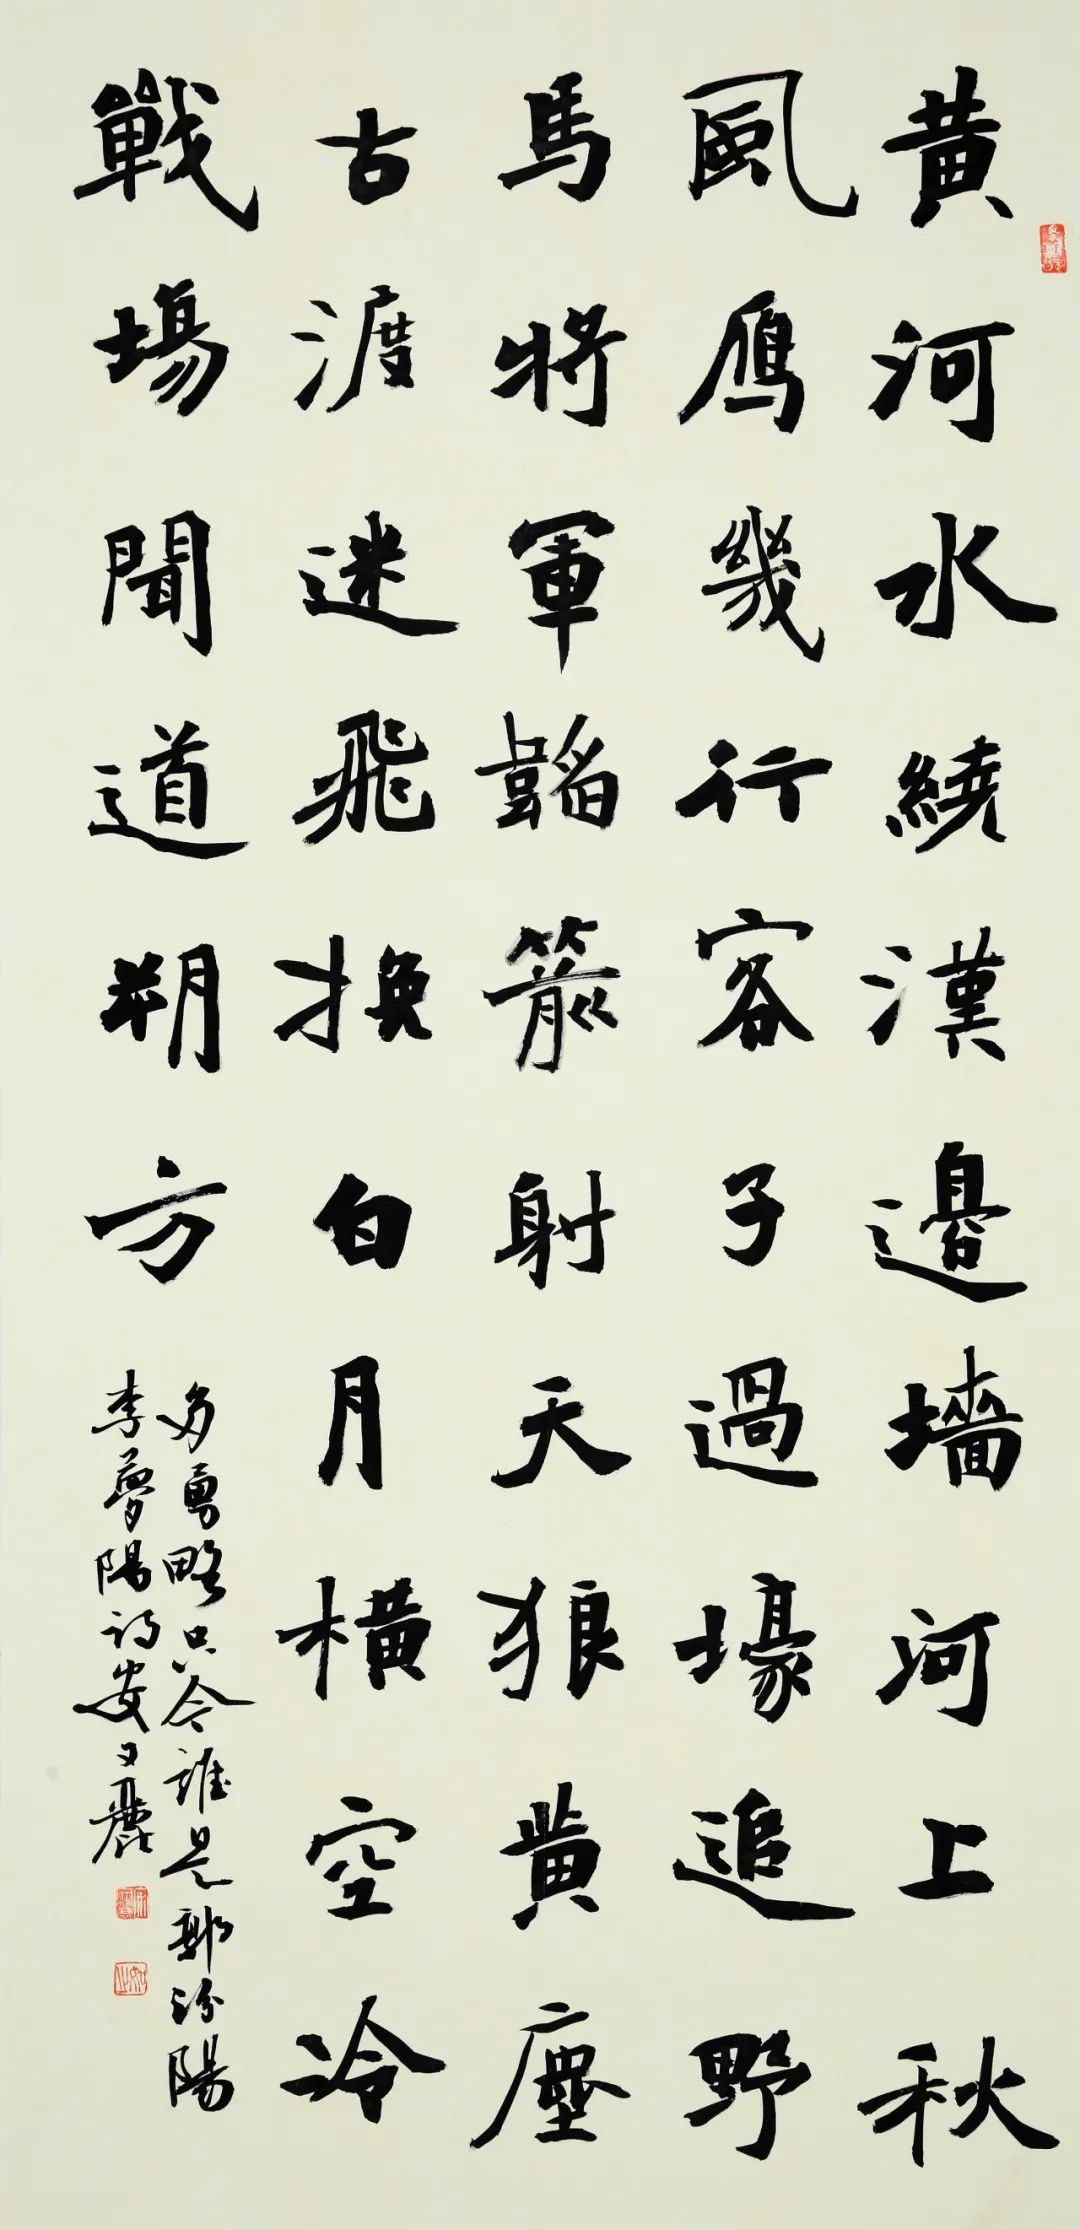 黄河水繞漢邊墻河上秋
風鴈幾行客子過壕追野
馬將軍韜箭射天狼黄塵
古渡迷飛挽白月橫空冷
戰場聞道朔方
多勇略只今誰是郭汾陽
李夢陽詩安文麗